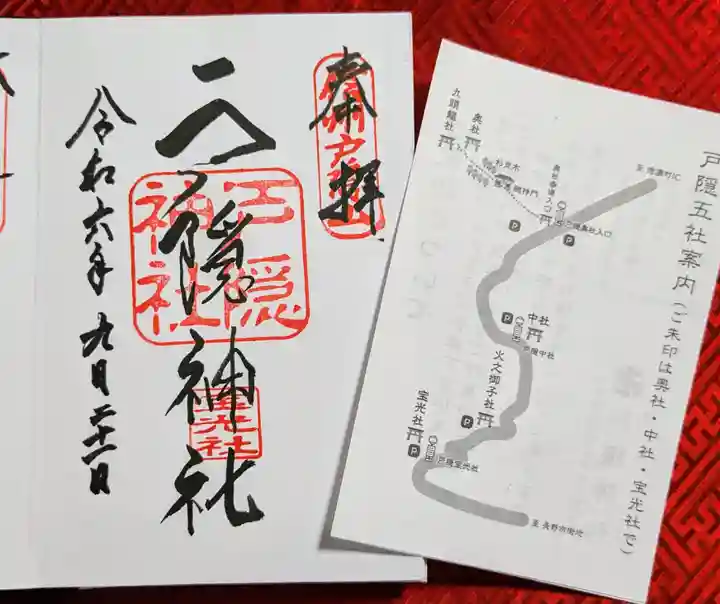 奉拝
戸隠神社
戸隠神社
宝光社
令和六年九月二十一日
戸隠五社案内(ご朱印は奥社・中社・宝光社で)
至 信濃町IC
九頭龍社
奥社
杉並木
随神門
奥社参道入口
戸隠奥社入口
P
P
中社
P
戸隠中社
火之御子社
P
宝光社
P
戸隠宝光社
至 長野市街地